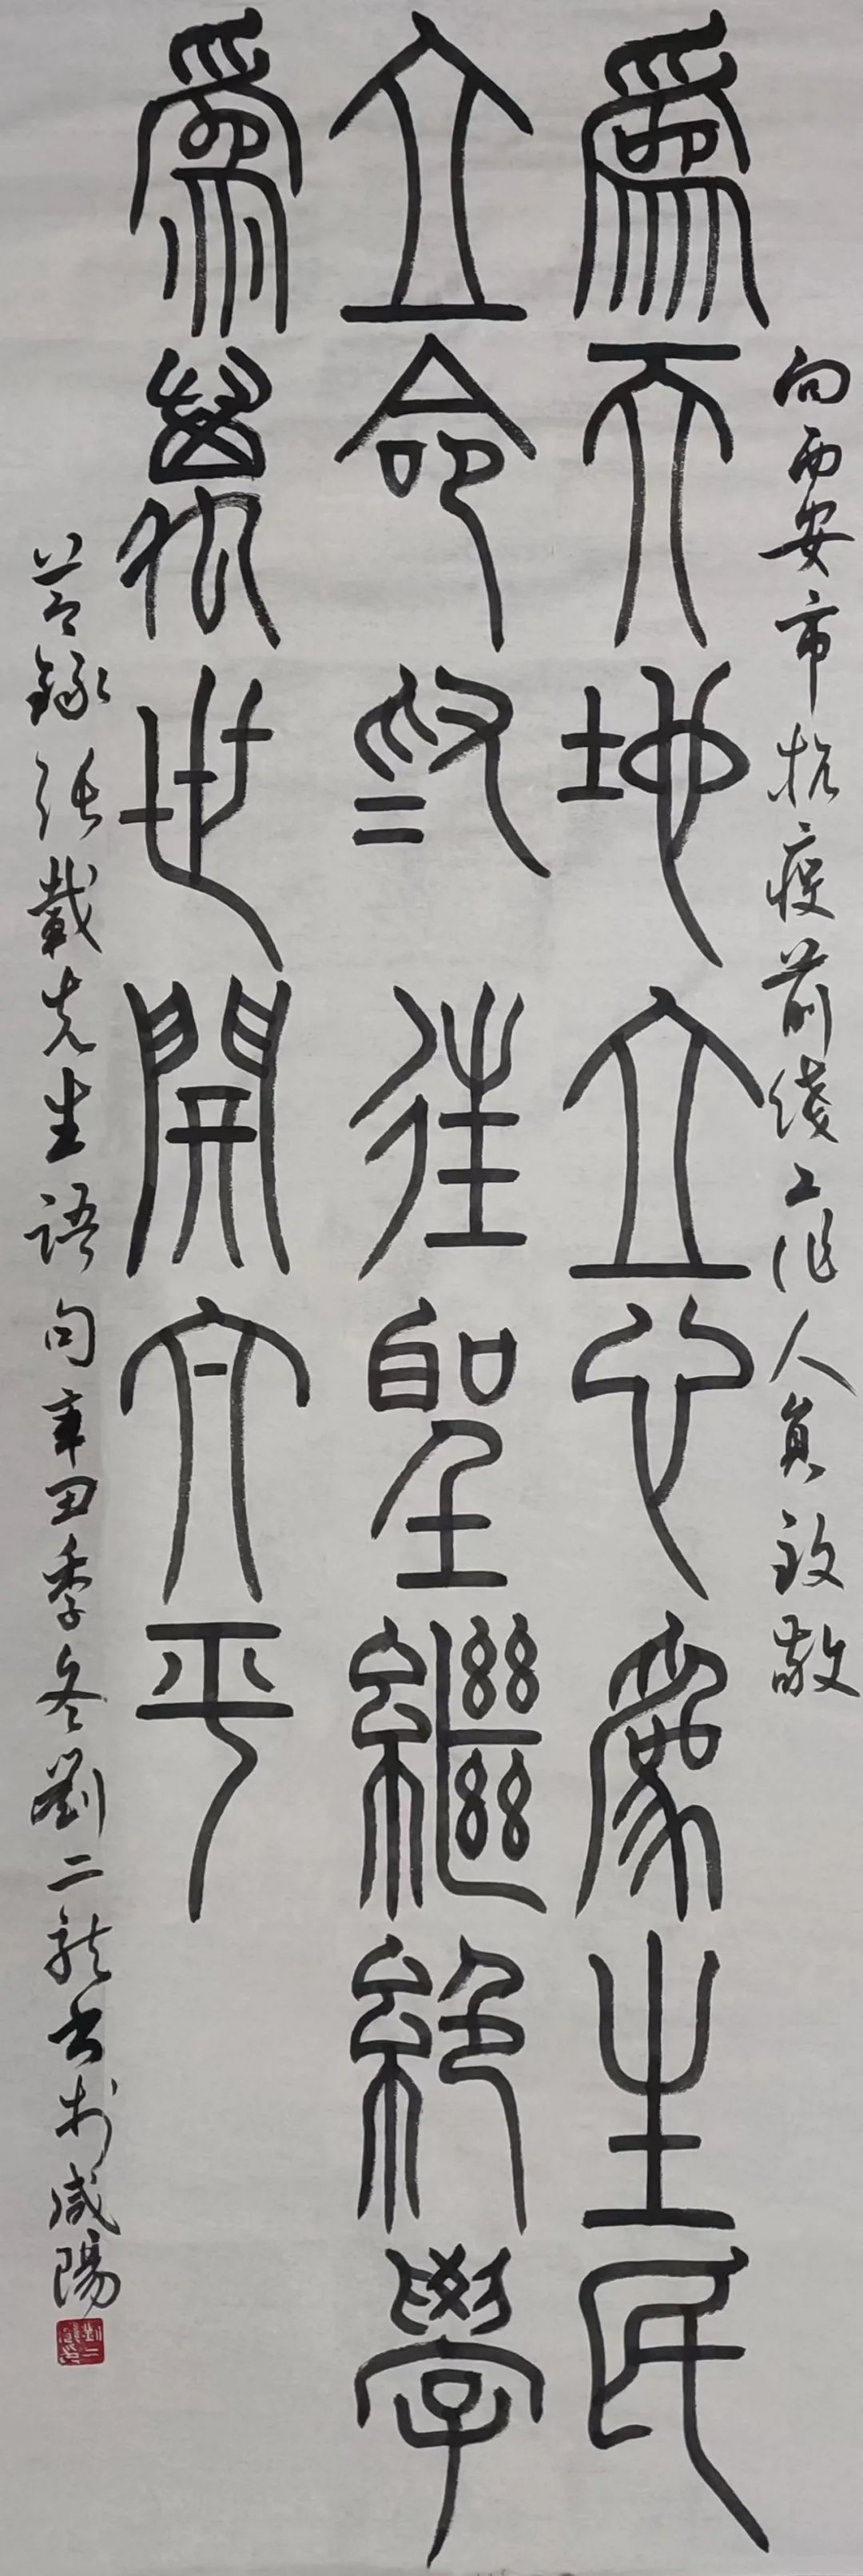 向西安市抗疫前线工作人員致敬
爲天地立心爲生民
立命爲往聖繼絕學
爲萬世開太平
节錄張載先生語句辛丑季冬劉二龍书於咸陽